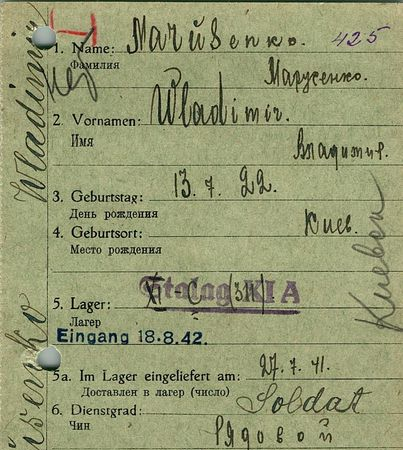 1. Name: Marusenko. 425
Фамилия
Марусенко.
2. Vornamen: Wladimir.
Имя
Владимир.
3. Geburtstag: 13.7.22.
День рождения
4. Geburtsort: Киев.
Место рождения
Киевск
Stalag XI A
5. Lager: XI C (311)
Лагерь
Eingang 18.8.42.
5a. Im Lager eingeliefert am: 27.7.41.
Доставлен в лагер (число)
6. Dienstgrad: Soldat
Чин
Рядовой
Wladimir